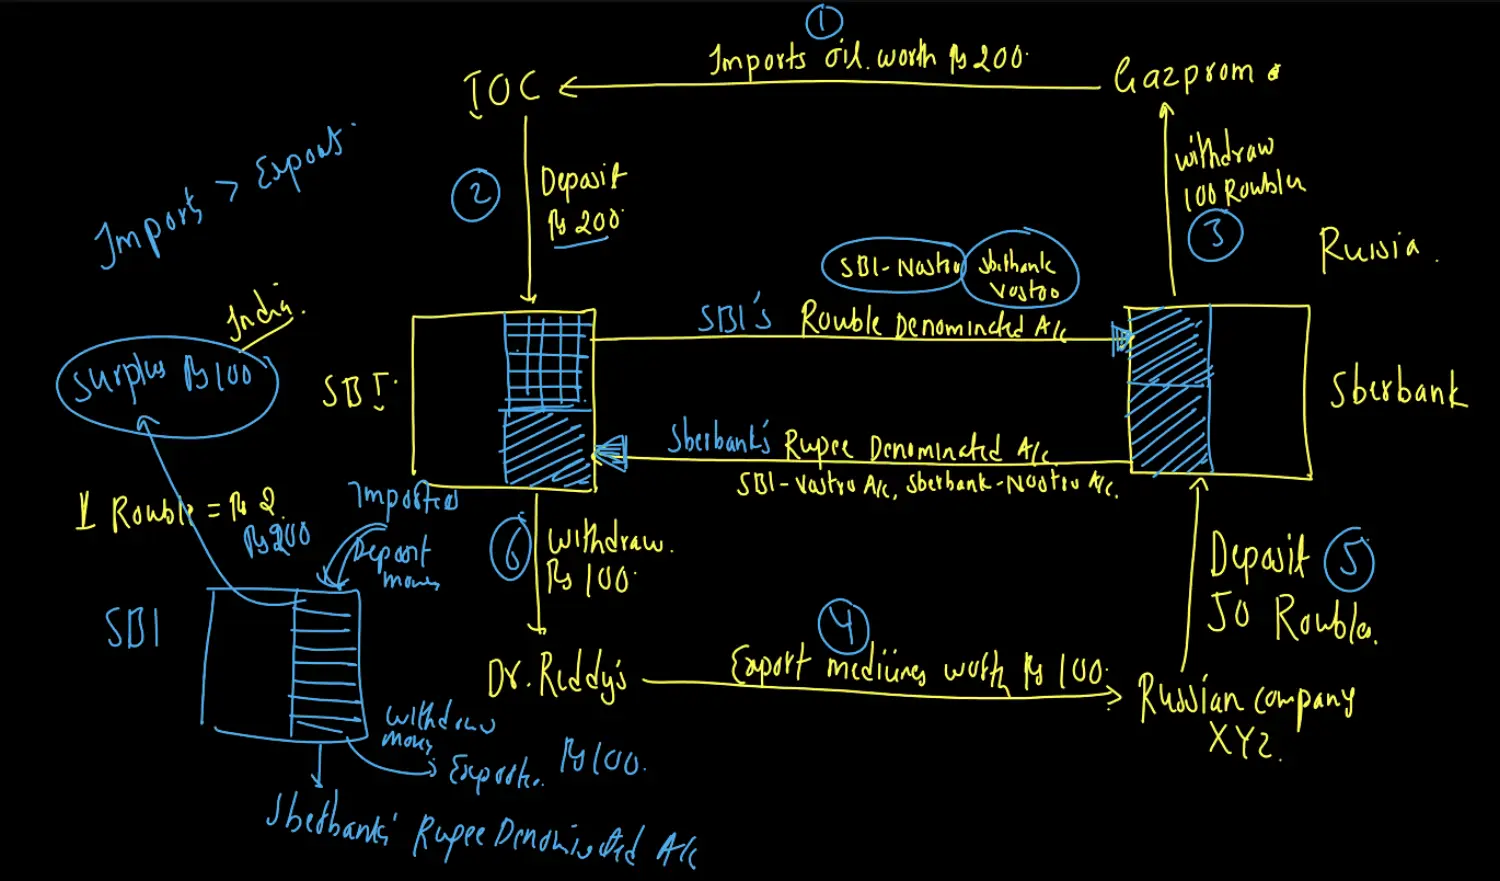 1
Imports oil worth ₨ 200.
IOC
Gazprom
Imports > Exports.
2
Deposit
₨ 200.
withdraw
100 Roubles
3
Russia.
SBI-Nostro
Sberbank
Vostro
India.
SBI's Rouble Denominated A/c
Surplus ₨ 100
SBI
Sberbank
Sberbank's Rupee Denominated A/c
SBI-Vostro A/c, Sberbank-Nostro A/c.
1 Rouble = ₨ 2.
₨ 200
Imported
Deposit
money
6
withdraw.
₨ 100.
Deposit
50 Roubles.
5
SBI
4
Export medicines worth ₨ 100.
Dr. Reddy's
Russian company
XYZ.
withdraw
money
₨ 100.
Sberbank's Rupee Denominated A/c